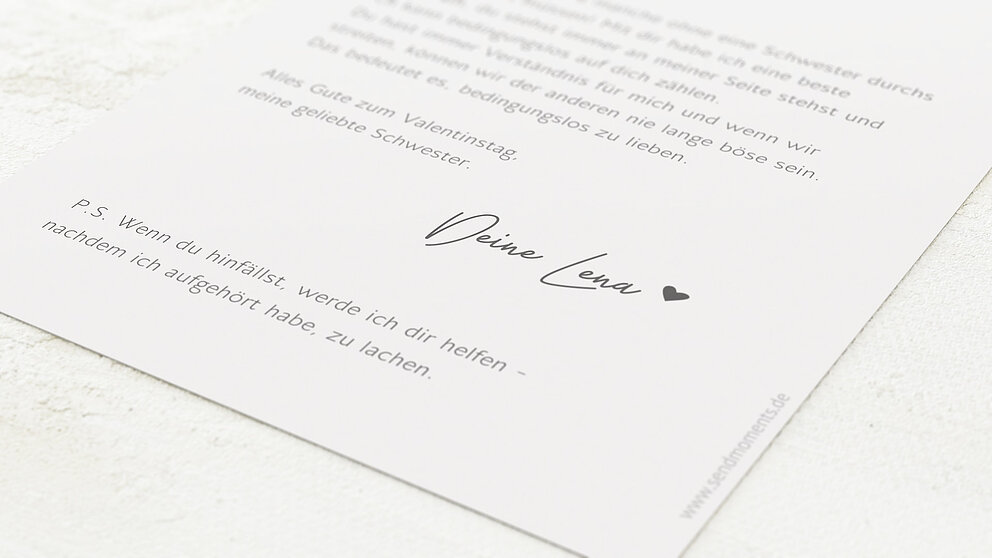 manche ohne eine Schwester durchs
Mit dir habe ich eine beste
du stehst immer an meiner Seite stehst und
kann bedingungslos auf dich zählen.
Du hast immer Verständnis für mich und wenn wir
streiten, können wir der anderen nie lange böse sein.
Das bedeutet es, bedingungslos zu lieben.
Alles Gute zum Valentinstag,
meine geliebte Schwester.
Deine Lena
P.S. Wenn du hinfällst, werde ich dir helfen -
nachdem ich aufgehört habe, zu lachen.
www.sendmoments.de